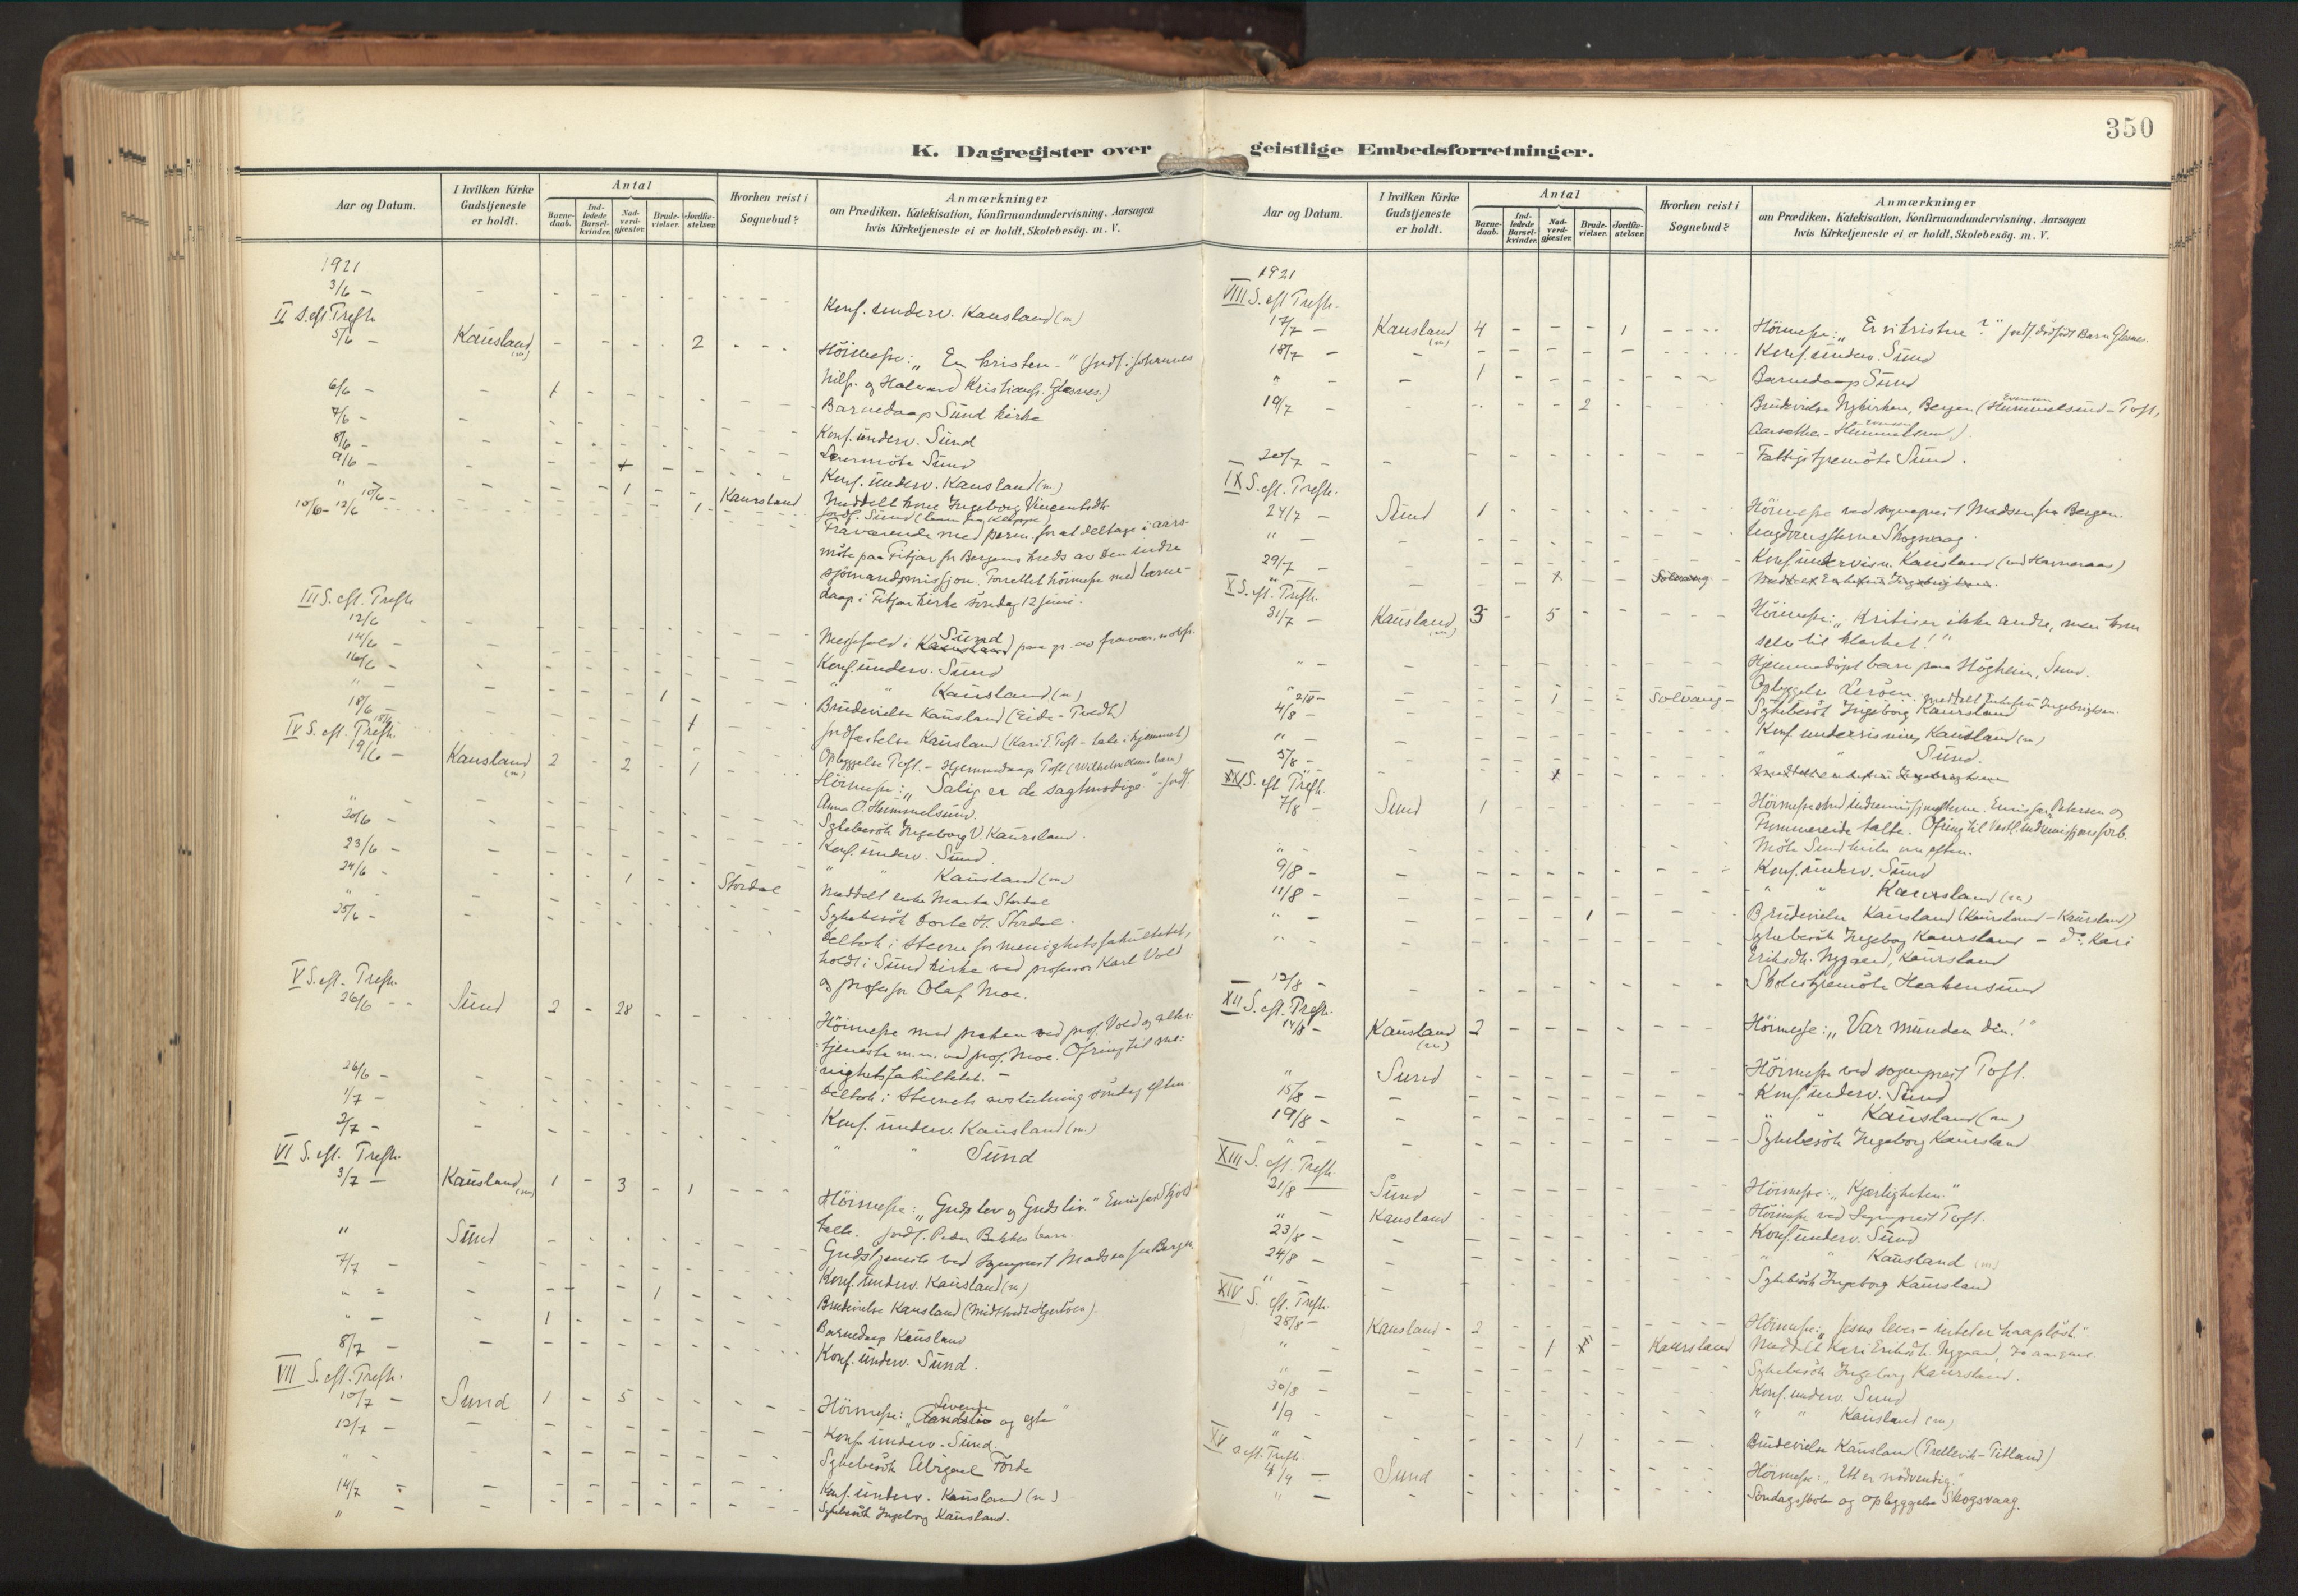 350
K. Dagregister over geistlige Embedsforretninger.
Aar og Datum.
I hvilken Kirke Gudstjeneste er holdt.
Antal
Barne-daab.
Ind-ledede Barsel-kvinder.
Nad-verd-gjester.
Brude-vielser.
Jordfæ-stelser.
Hvorhen reist i Sognebud?
Anmærkninger
om Prædiken, Katekisation, Konfirmandundervisning, Aarsagen
hvis Kirketjeneste ei er holdt, Skolebesög. m. V.
1921
3/6 - Konf. underv. Kausland (m)
II S. eft. Trefh.
5/6 - Kausland (m) 2 Höimesse: "En kristen -" (Jordf. Johannes
Nilss. og Halvard Kristianss. Glesnes.)
6/6 - 1 Barnedaap Sund kirke
7/6 - Konf. underv. Sund
8/6 - Lærermöte Sund
9/6 - Konf. underv. Kausland (m.)
" 1 Kaursland Meddelt kone Ingeborg Vincentsdtr.
10/6 - 1 Jordf. Sund
10/6 - 12/6 Fraværende med perm. for at deltage i aars-
möte paa Fitjar for Bergens kreds av den indre
sjömandsmissjon. Forrettet höimesse med barne-
daap i Fitjar kirke söndag 12 juni.
III S. eft. Trefh.
12/6 Messefald i Sund paa gr. av fravær.
14/6 - Konf. underv. Sund
16/6 - " " Kausland (m)
" - 1 Brudevielse Kausland (Eide - Tvedt)
18/6 - 1 Jordfæstelse Kausland (Kari E. Toft - tale i hjemmet)
18/6 Opbyggelse Toft. - Hjemmedaap Toft
IV S. eft. Trefh.
19/6 - Kausland (m) 2 - 2 - 1 Höimesse: "Salig er de sagtmodige" - Jordf.
Anna O. Hummelsund.
" Sykebesök Ingeborg V. Kaursland.
20/6 - Konf. underv. Sund.
23/6 - " " Kausland (m)
24/6 - 1 Stordal Meddelt enke Marta Stordal
" Sykebesök Dorte H. Stordal.
25/6 - Deltok i stevne for menighetsfakultetet,
holdt i Sund kirke ved professor Karl Vold
og professor Olaf Moe.
V S. eft. Trefh.
26/6 - Sund 2 - 28 Höimesse med præken ved prof. Vold og alter-
tjeneste m.m. ved prof. Moe. Ofring til me-
nighetsfakultetet. -
26/6 - Deltok i stevnets avslutning söndag eften.
1/7 - Konf. underv. Kausland (m.)
2/7 - " " Sund
VI S. eft. Trefh.
3/7 - Kausland (m) 1 - 3 - 1 Höimesse: "Guds lov og Guds liv."
talte. Jordf. Peder Bakkes barn.
" Sund Gudstjeneste ved sogneprest Madsen fra Bergen.
7/7 - Konf. underv. Kausland (m)
" 1 Brudevielse Kausland
" - 1 Barnedaap Kausland
8/7 - Konf. underv. Sund.
VII S. eft. Trefh.
10/7 - Sund 1 - 5 Höimesse: "Levende og egte"
12/7 - Konf. underv. Sund.
" Sykebesök Abigael Förde
14/7 Konf. underv. Kausland (m)
" Sykebesök Ingeborg Kaursland.
Aar og Datum.
I hvilken Kirke Gudstjeneste er holdt.
Antal
Barne-daab.
Ind-ledede Barsel-kvinder.
Nad-verd-gjester.
Brude-vielser.
Jordfæ-stelser.
Hvorhen reist i Sognebud?
Anmærkninger
om Prædiken, Katekisation, Konfirmandundervisning, Aarsagen
hvis Kirketjeneste ei er holdt, Skolebesög. m. V.
1921
VIII S. eft. Trefh.
17/7 - Kausland (m) 4 - - - 1 Höimesse: "Er vi kristne?" Jordf. dödfödt Barn Glesnes.
18/7 - Konf. underv. Sund
" - 1 Barnedaap Sund
19/7 - 2 Brudevielse Nykirken, Bergen (Hummelsund - Toft,
Aarsether - Hummelsund).
20/7 - Fattigstyremöte Sund.
IX S. eft. Trefh.
24/7 - Sund 1 Höimesse ved sogneprest Madsen fra Bergen.
" - Ungdomsstevne Skogsvaag.
29/7 - Konf. undervisn. Kausland
X S. eft. Trefh.
31/7 - Kausland (m) 3 - 5 Höimesse: "Kritiser ikke andre, men kom
selv til klarhet!"
" - Hjemmedöpt barn paa Högheim, Sund.
" Opbyggelse Leröen.
2/8 - 1 Solvang - Meddelt Enkefru Ingebrigtsen.
4/8 - Sykebesök Ingeborg Kaursland
" - Konf. undervisning Kausland (m)
5/8 - " " Sund.
XI S. eft. Trefh.
7/8 - Sund 1 Höimesse ved indremissjonsstevne. Emissær Petersen og
Tummereide talte. Ofring til Vestl. indremisjonsforb.
" - Möte Sund kirke om eften.
9/8 - Konf. underv. Sund
11/8 - " " Kaursland (m)
" - 1 Brudevielse Kausland (Kaursland - Kaursland)
" Sykebesök Ingeborg Kaursland - do. Kari
Eriksdtr. Nygaard, Kaursland
12/8 - Skolestyremöte Heakensund
XII S. eft. Trefh.
14/8 - Kausland (m) 2 Höimesse: "Var munden din!"
" Sund Höimesse ved sogneprest Toft.
15/8 - Konf. underv. Sund
19/8 - " " Kausland (m)
" Sykebesök Ingeborg Kaursland
XIII S. eft. Trefh.
21/8 Sund Höimesse: "Kjærligheten."
" - Kausland Höimesse ved Sogneprest Toft.
23/8 - Konf. underv. Sund
24/8 - " " Kausland (m)
" Sykebesök Ingeborg Kaursland
XIV S. eft. Trefh.
28/8 - Kausland - 2 Höimesse: "Jesus lever - intet er haaplöst"
" 1 Kaursland Meddelt Kari Eriksdtr. Nygaard,
" Sykebesök Ingeborg Kaursland.
30/8 - Konf. underv. Sund
1/9 - " " Kausland (m)
" - 1 Brudevielse Kausland (Trellevik - Titland)
XV S. eft. Trefh.
4/9 - Sund Höimesse: "Ett er nödvendig."
" - Söndagsskole og opbyggelse Skogsvaag.